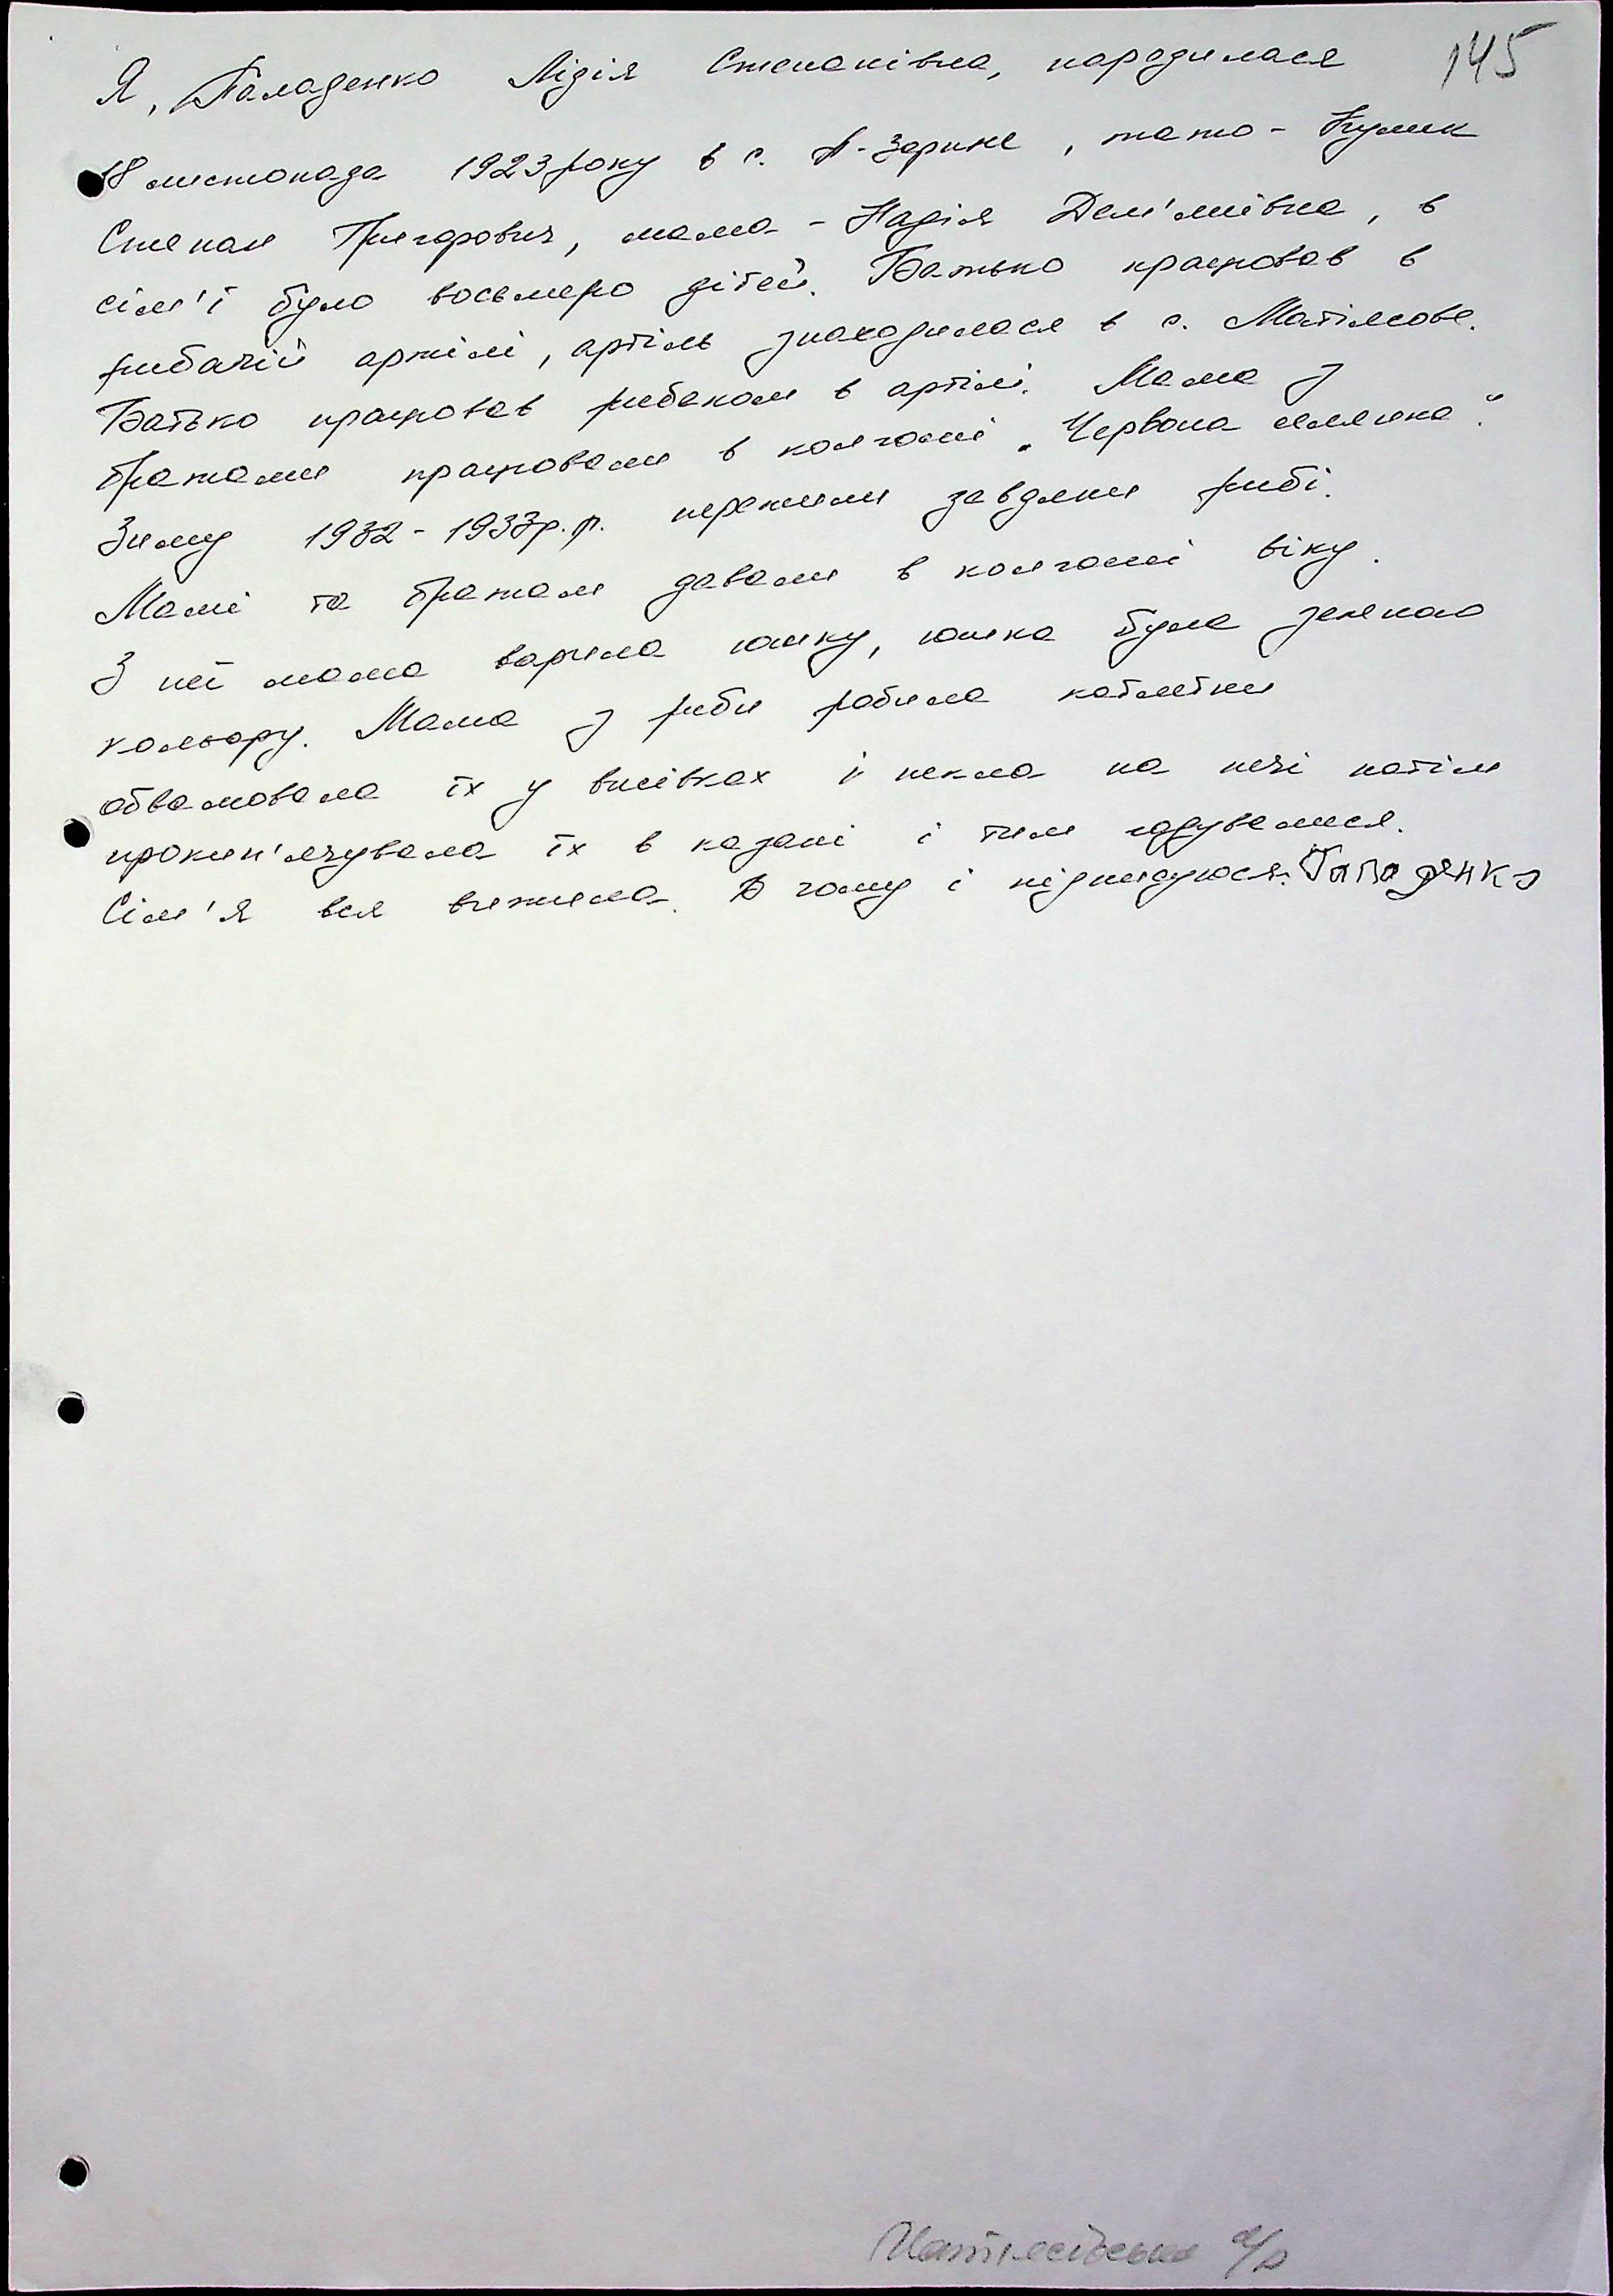 145
Я, Паладенко Лідія Степанівна, народилася
18 листопада 1923 року в с. П-Зорине, тато - Кулик
Степан Григорович, мама - Надія Дем'янівна, в
сім'ї було восьмеро дітей. Батько працював в
рибачій артілі, артіль знаходилася в с. Матіясове.
Батько працював рибаком в артілі. Мама з
братами працювали в колгоспі „Червона
Зиму 1932 - 1933 р.р. пережили завдяки рибі.
Мамі та братам давали в колгоспі віку.
З неї мама варила юшку, юшка була зеленого
кольору. Мама з риби робила котлетки
обвалювала їх у висівках і пекла на печі потім
прокип'ячувала їх в казані і тим годувалися.
Сім'я вся вижила. В чому і підписуюся:
Матіясівська с/р